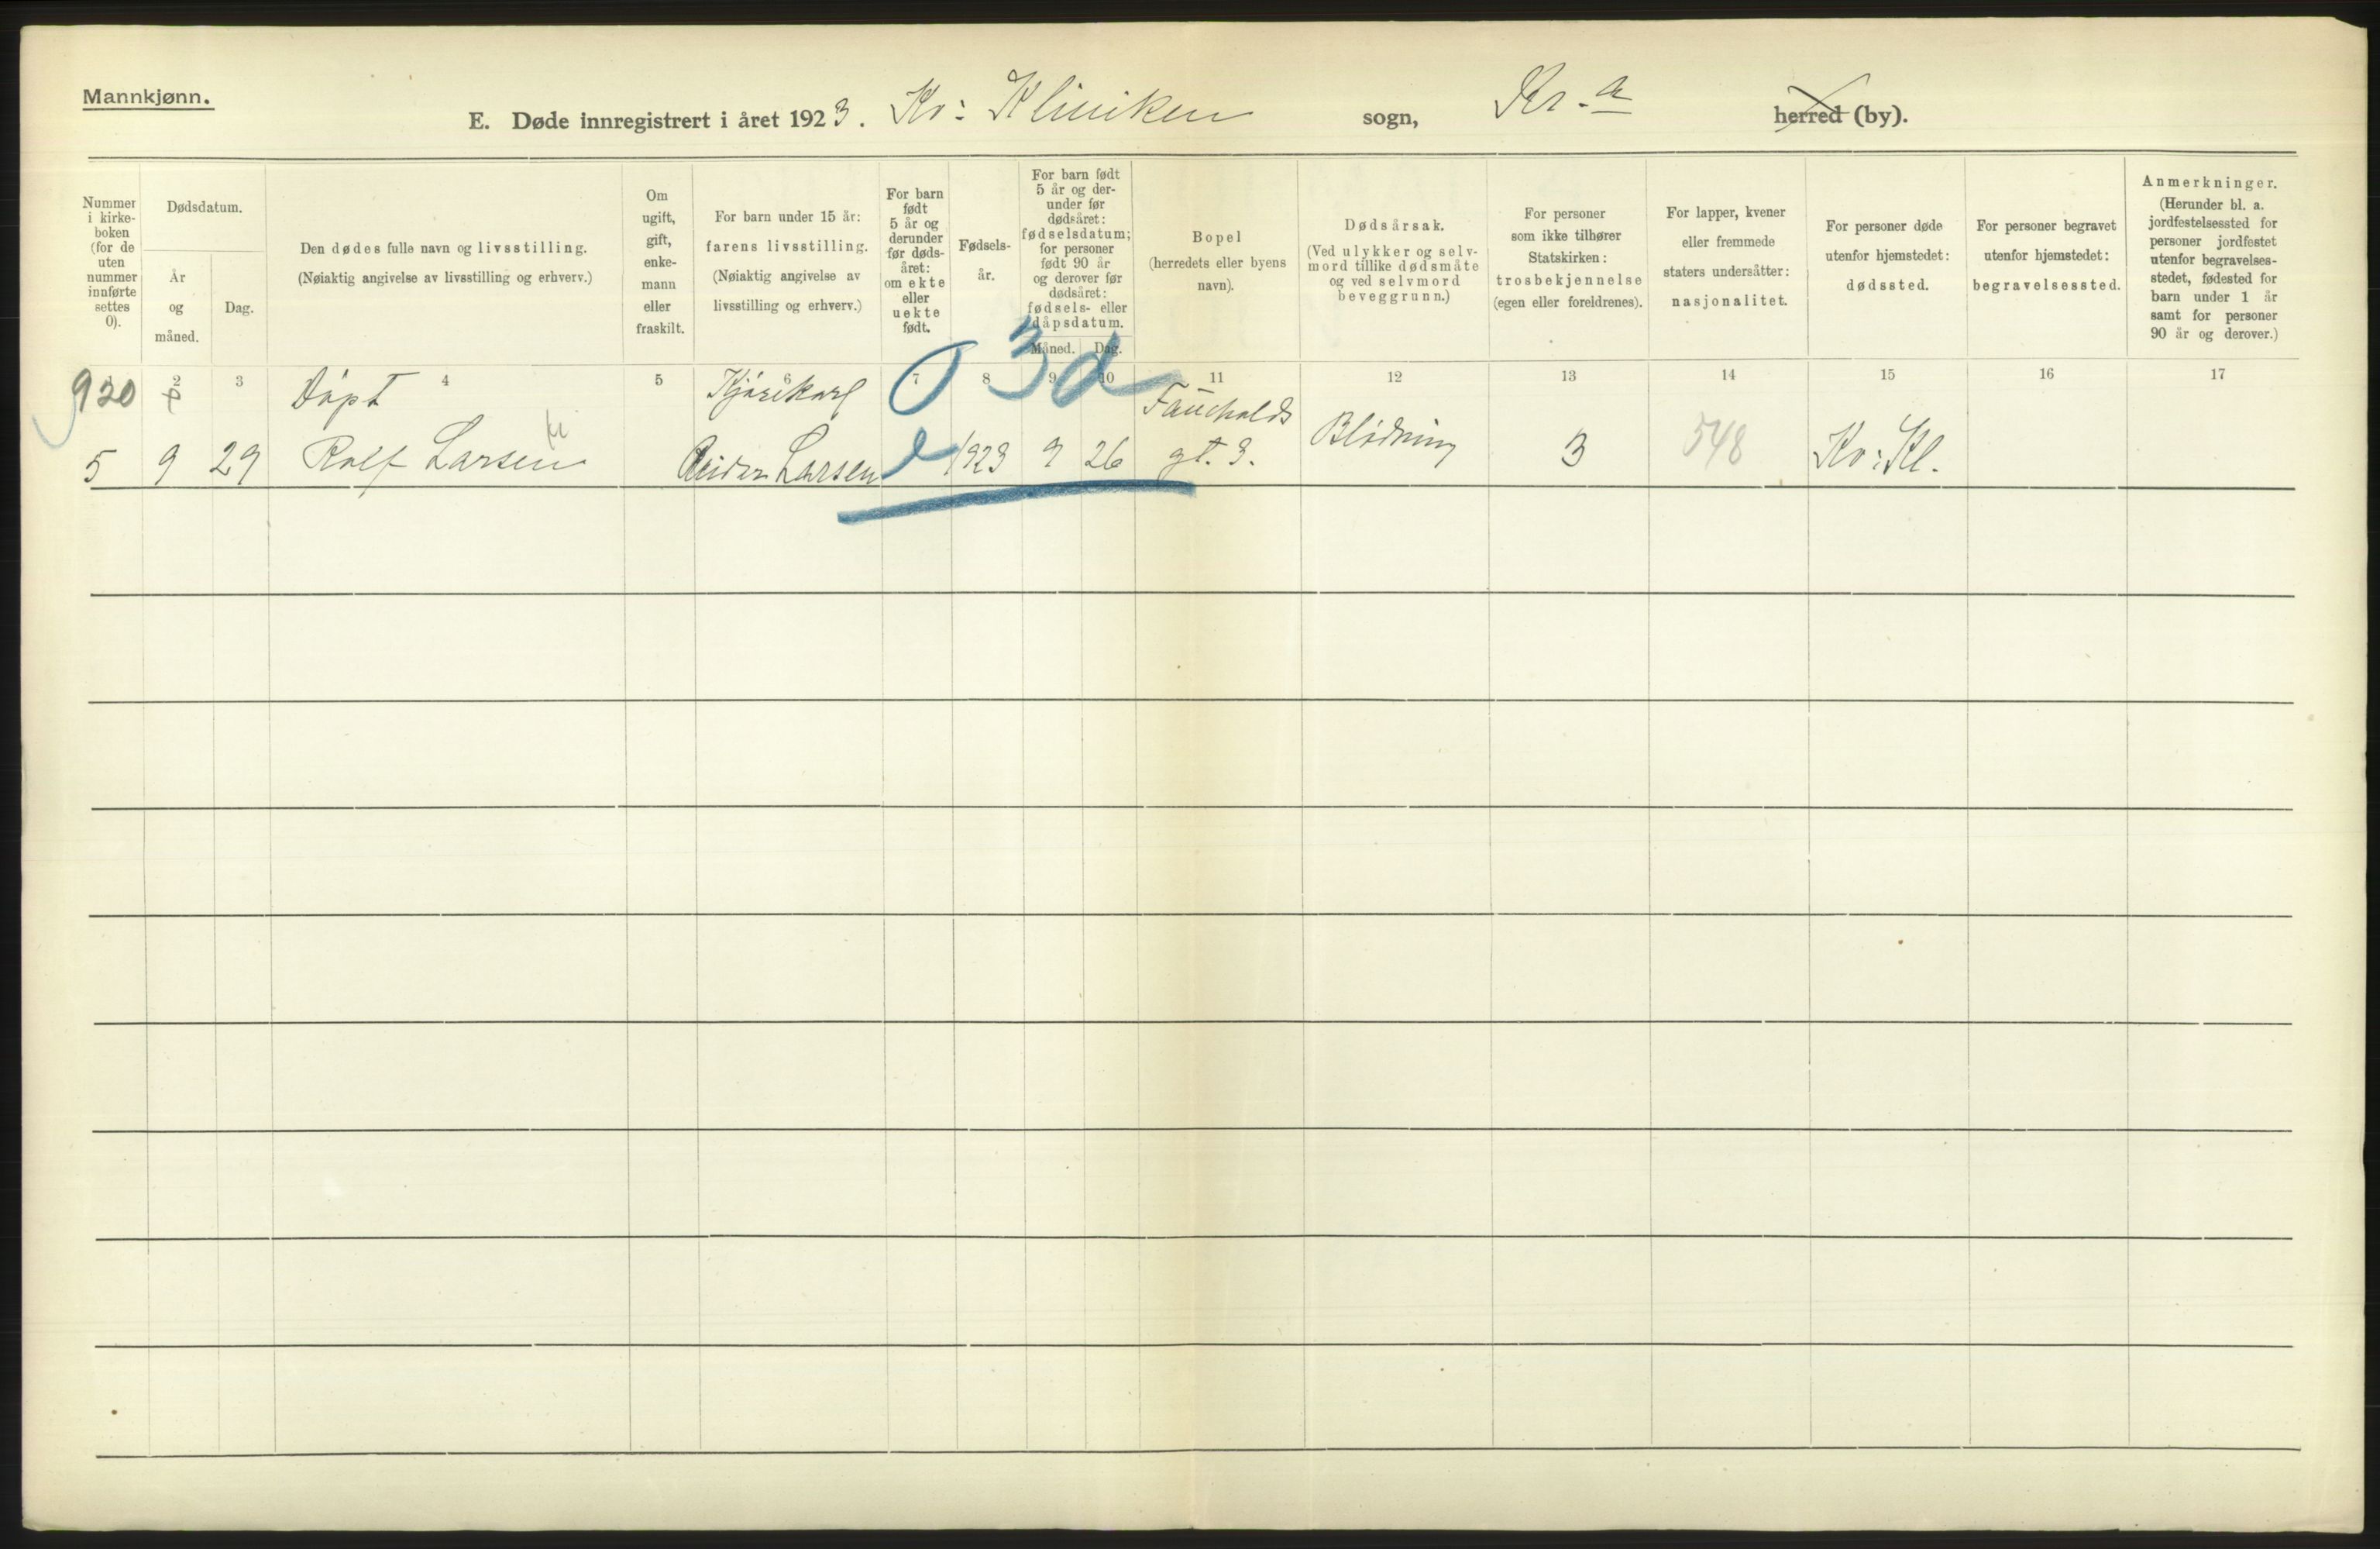 Mannkjønn.
E. Døde innregistrert i året 1923. Kv: Kliniken sogn, Kr.a herred (by).
Nummer i kirke-boken (for de uten nummer innførte settes 0).
Dødsdatum.
År og måned.
Dag.
Den dødes fulle navn og livsstilling.
(Nøiaktig angivelse av livsstilling og erhverv.)
Om ugift, gift, enke-mann eller fraskilt.
For barn under 15 år:
farens livsstilling.
(Nøiaktig angivelse av livsstilling og erhverv.)
For barn født 5 år og derunder før døds-året: om ekte eller uekte født.
Fødsels-år.
For barn født 5 år og der-under før dødsåret: fødselsdatum; for personer født 90 år og derover før dødsåret: fødsels- eller dåpsdatum.
Måned. Dag.
Bopel
(herredets eller byens navn).
Dødsårsak.
(Ved ulykker og selv-mord tillike dødsmåte og ved selvmord beveggrunn.)
For personer som ikke tilhører Statskirken: trosbekjennelse (egen eller foreldrenes).
For lapper, kvener eller fremmede staters undersåtter: nasjonalitet.
For personer døde utenfor hjemstedet: dødssted.
For personer begravet utenfor hjemstedet: begravelsessted.
Anmerkninger.
(Herunder bl. a. jordfestelsessted for personer jordfestet utenfor begravelses-stedet, fødested for barn under 1 år samt for personer 90 år og derover.)
2 3 4 5 6 7 8 9 10 11 12 13 14 15 16 17
920 Døpt Kjørekarl 3d Fauchalds
5 9 29 Rolf Larsen Larsen e 1923 9 26 gt. 3. Blødning 3 548 Kv: Kl.